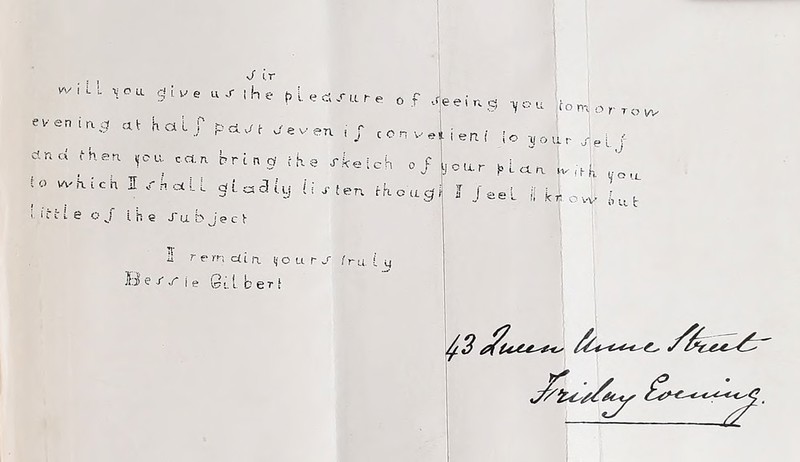 Sir
will you give us the pleasure of seeing you tomorrow
evening at half past seven if convenient to your self
and then you can bring the sketch of your plan with you
to which I shall gladly listen though I feel I know but
little of the subject
I remain yours truly
Bessie Gilbert
43 Queen Anne Street
Friday Evening.